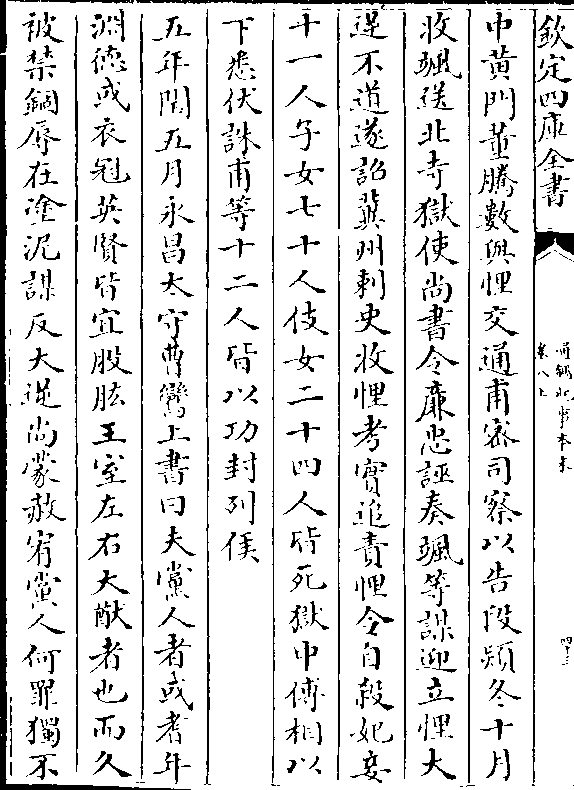 欽定四庫全書
通鑑紀事本末
卷八上
四十三
中黄門董騰數與悝交通甫密司察以告段熲冬十月
收颯送北寺獄使尚書令廉忠誣奏颯等謀迎立悝大
逆不道遂詔冀州刺史收悝考實追責悝令自殺妃妾
十一人子女七十人伎女二十四人皆死獄中傅相以
下悉伏誅甫等十二人皆以功封列侯
五年閏五月永昌太守曹鸞上書曰夫黨人者或耆年
淵德或衣冠英賢皆宜股肱王室左右大猷者也而久
被禁錮辱在塗泥謀反大逆尚蒙赦宥黨人何罪獨不